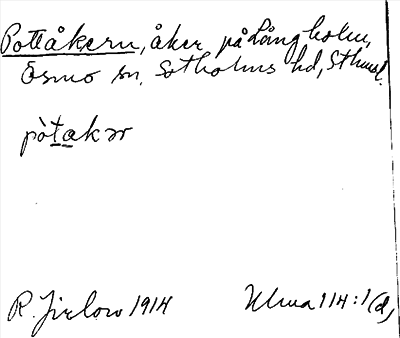 Pottåkern, åker på Långholm,
Ösmo sn, Sotholms hd, Sthmsl.
pòtakər
R. Jirlow 1914 Ulma 114:1(d)